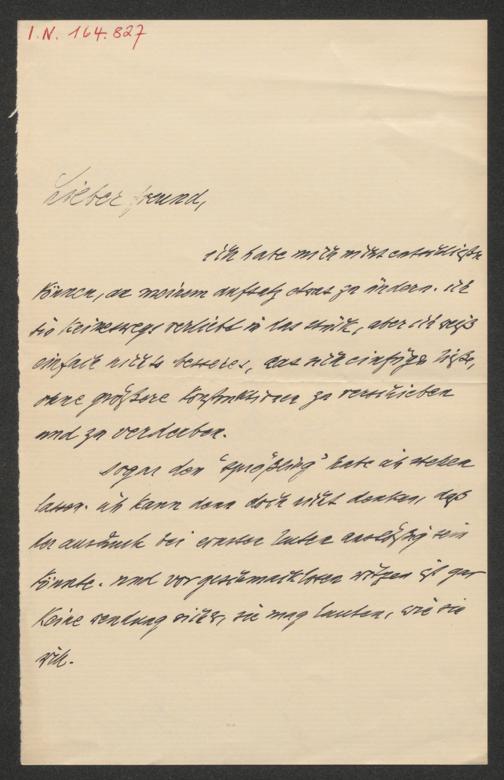 I.N. 164.827
Lieber freund,
ich habe mich nicht entschließen
können, an meinem aufsatz etwas zu ändern. ich
bin keineswegs verliebt in das stück, aber ich weiß
einfach nichts besseres, das sich einfügen ließe,
ohne größere konstruktionen zu verschieben
und zu verderben.
sogar den "sprößling" habe ich stehen
lassen. ich kann denn doch nicht denken, daß
der ausdruck bei ernsten leuten anstößig sein
könnte. und vor geschmacklosen witzen ist gar
keine wendung sicher, sie mag lauten, wie sie
will.